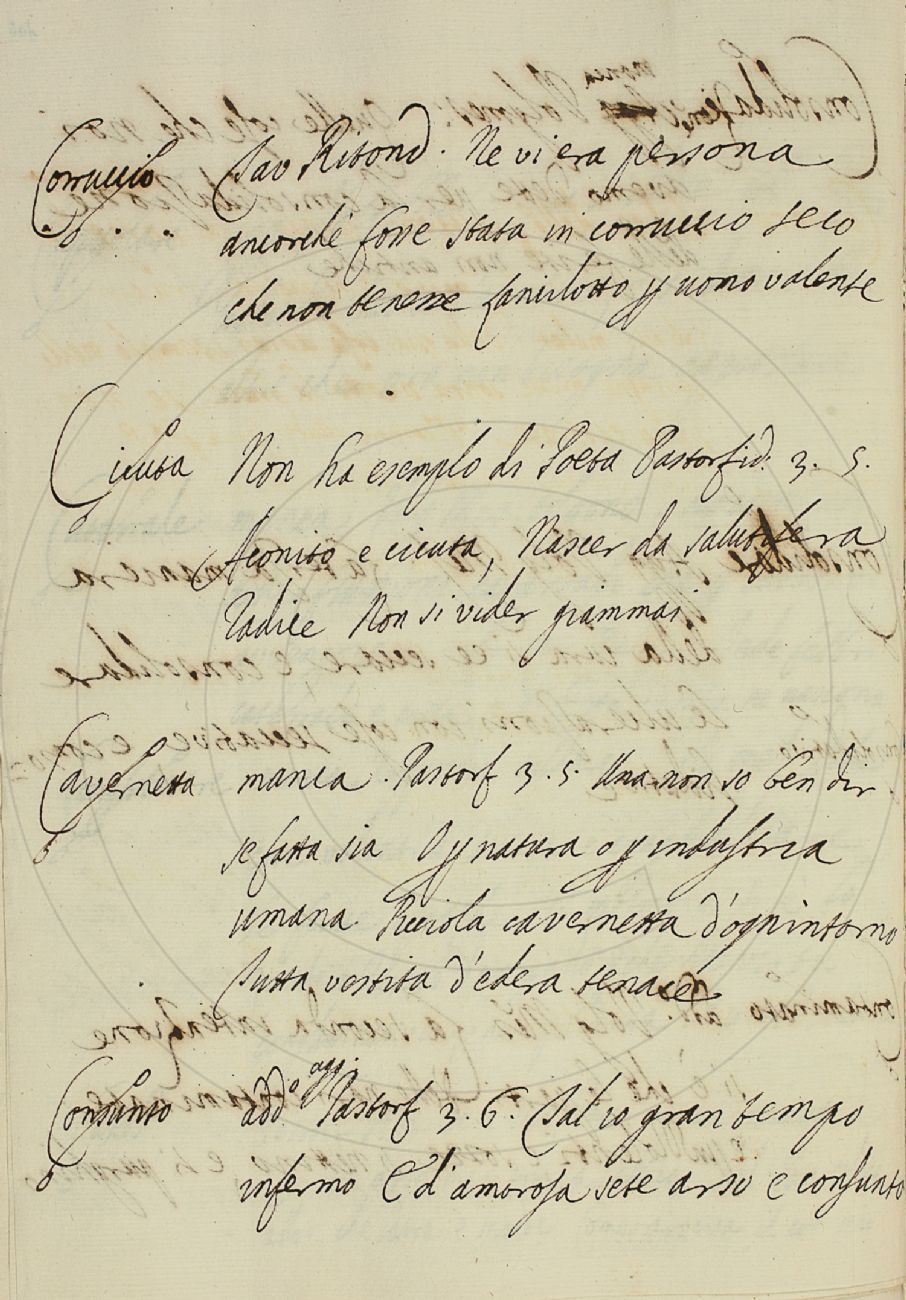 Corruccio Tav Ritond. Ne vi era persona
ancorchè fosse stata in corruccio seco
che non tenesse Lancilotto p uomo valente
Cicuta Non ha esemplo di Poeta Pastorfid. 3. 5.
Aconito e cicuta, Nascer da salutifera
Radice Non si vider giammai
Cavernetta manca. Pastorf 3. 5. Una non so ben dir
se fatta sia O p natura o p industria
umana Picciola cavernetta d'ogn'intorno
Tutta vestita d'edera tenace
Consunto add.º agg. Pastorf 3. 6. Tal io gran tempo
infermo E d'amorosa sete arso e consunto